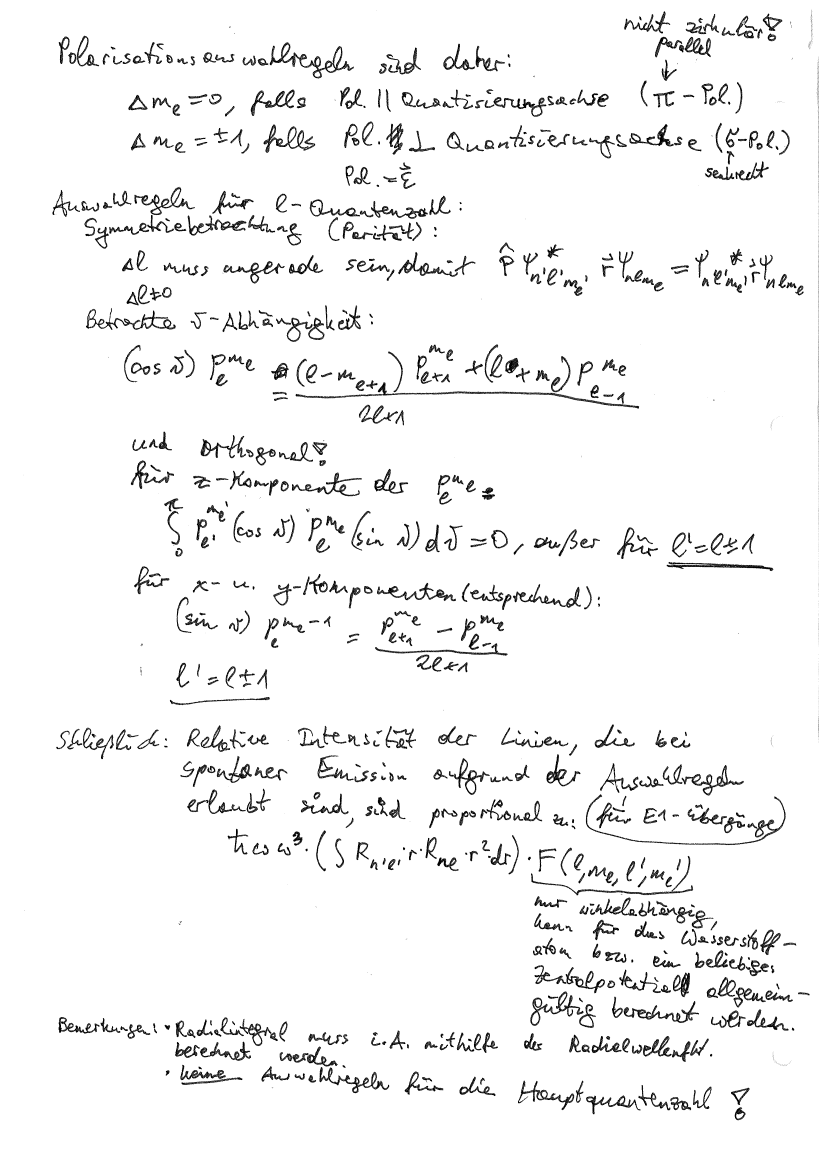 nicht zirkulär!
parallel
↓
Polarisationsauswahlregeln sind daher:
Δmₑ = 0, falls Pol. || Quantisierungsachse (π - Pol.)
Δmₑ = ±1, falls Pol. ⊥ Quantisierungsachse (σ-Pol.)
↑
senkrecht
Pol. = ε⃗
Auswahlregeln für l-Quantenzahl:
Symmetriebetrachtung (Parität):
Δl muss ungerade sein, damit P̂ ψ*ₙ'ₗ'ₘₑ' r⃗ ψₙₗₘₑ = ψ*ₙ'ₗ'ₘₑ' r⃗ ψₙₗₘₑ
Δl≠0
Betrachte ϑ-Abhängigkeit:
(cos ϑ) P_l^{m_l} = ((l - m_{l+1}) P_{l+1}^{m_l} + (l + m_l) P_{l-1}^{m_l}) / (2l+1)
und Orthogonal!
für z-Komponente der P_l^{m_l} =
∫₀^π P_{l'}^{m_l'} (cos ϑ) P_l^{m_l} (sin ϑ) dϑ = 0, außer für l' = l±1
für x- u. y-Komponenten (entsprechend):
(sin ϑ) P_l^{m_l - 1} = (P_{l+1}^{m_l} - P_{l-1}^{m_l}) / (2l+1)
l' = l±1
Schließlich: Relative Intensität der Linien, die bei
spontaner Emission aufgrund der Auswahlregeln
erlaubt sind, sind proportional zu: (für E1-Übergänge)
ħω ω³ · (∫ R_{n'l'} · r · R_{nl} · r² · dr) · F(l, m_l, l', m_l')
nur winkelabhängig,
kann für das Wasserstoff-
atom bzw. ein beliebiges
Zentralpotential allgemein-
gültig berechnet werden.
Bemerkungen: • Radialintegral muss i.A. mithilfe der Radialwellenfkt.
berechnet werden.
• keine Auswahlregeln für die Hauptquantenzahl !